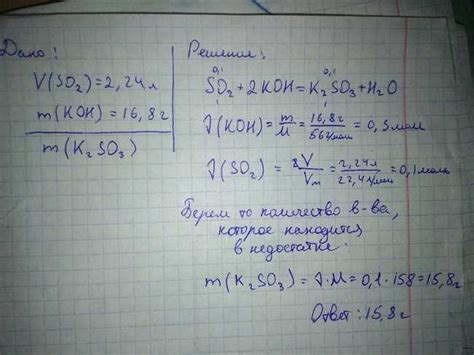 Дано:
V(SO₂)=2,24л
m(KOH)=16,8г
m(K₂SO₃)
Решение:
0,1 0,1
SO₂+2KOH=K₂SO₃+H₂O
1 1
J(KOH)=m/M=16,8г/56г/моль=0,3моль
J(SO₂)=V/Vm=2,24л/22,4л/моль=0,1моль
Берем то количество в-ва,
которое находится
в недостатке.
m(K₂SO₃)=J·M=0,1·158=15,8г
Ответ:15,8г